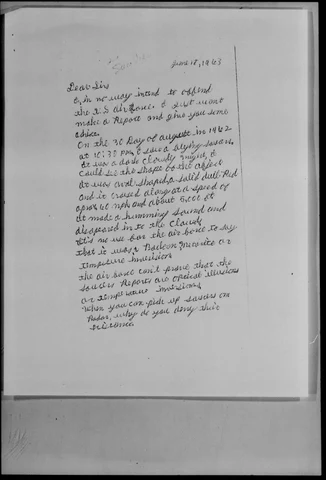 June 18, 1963
Dear Sirs
I, in no way intend to offend
the U.S air Force. I just want
make a Report and give you some
advice.
On the 30 Day of august in 1962
at 10:30 P.M. I saw a flying saucer.
It was a dark cloudy night, I
could see the shape of the object
it was oval shaped, a solid dull Red
and it cruised along at a speed of
aprox 60 mph and about feet at
it made a humming sound and
disapeared in to the clouds
It's no use for the air force to say
that it was a Baloon, meorite or
tempature inversion.
the air force can't prove that the
saucer Reports are optical illusions
or tempature inversions.
When you can pick up saucers on
Radar, why do you deny their
existence.